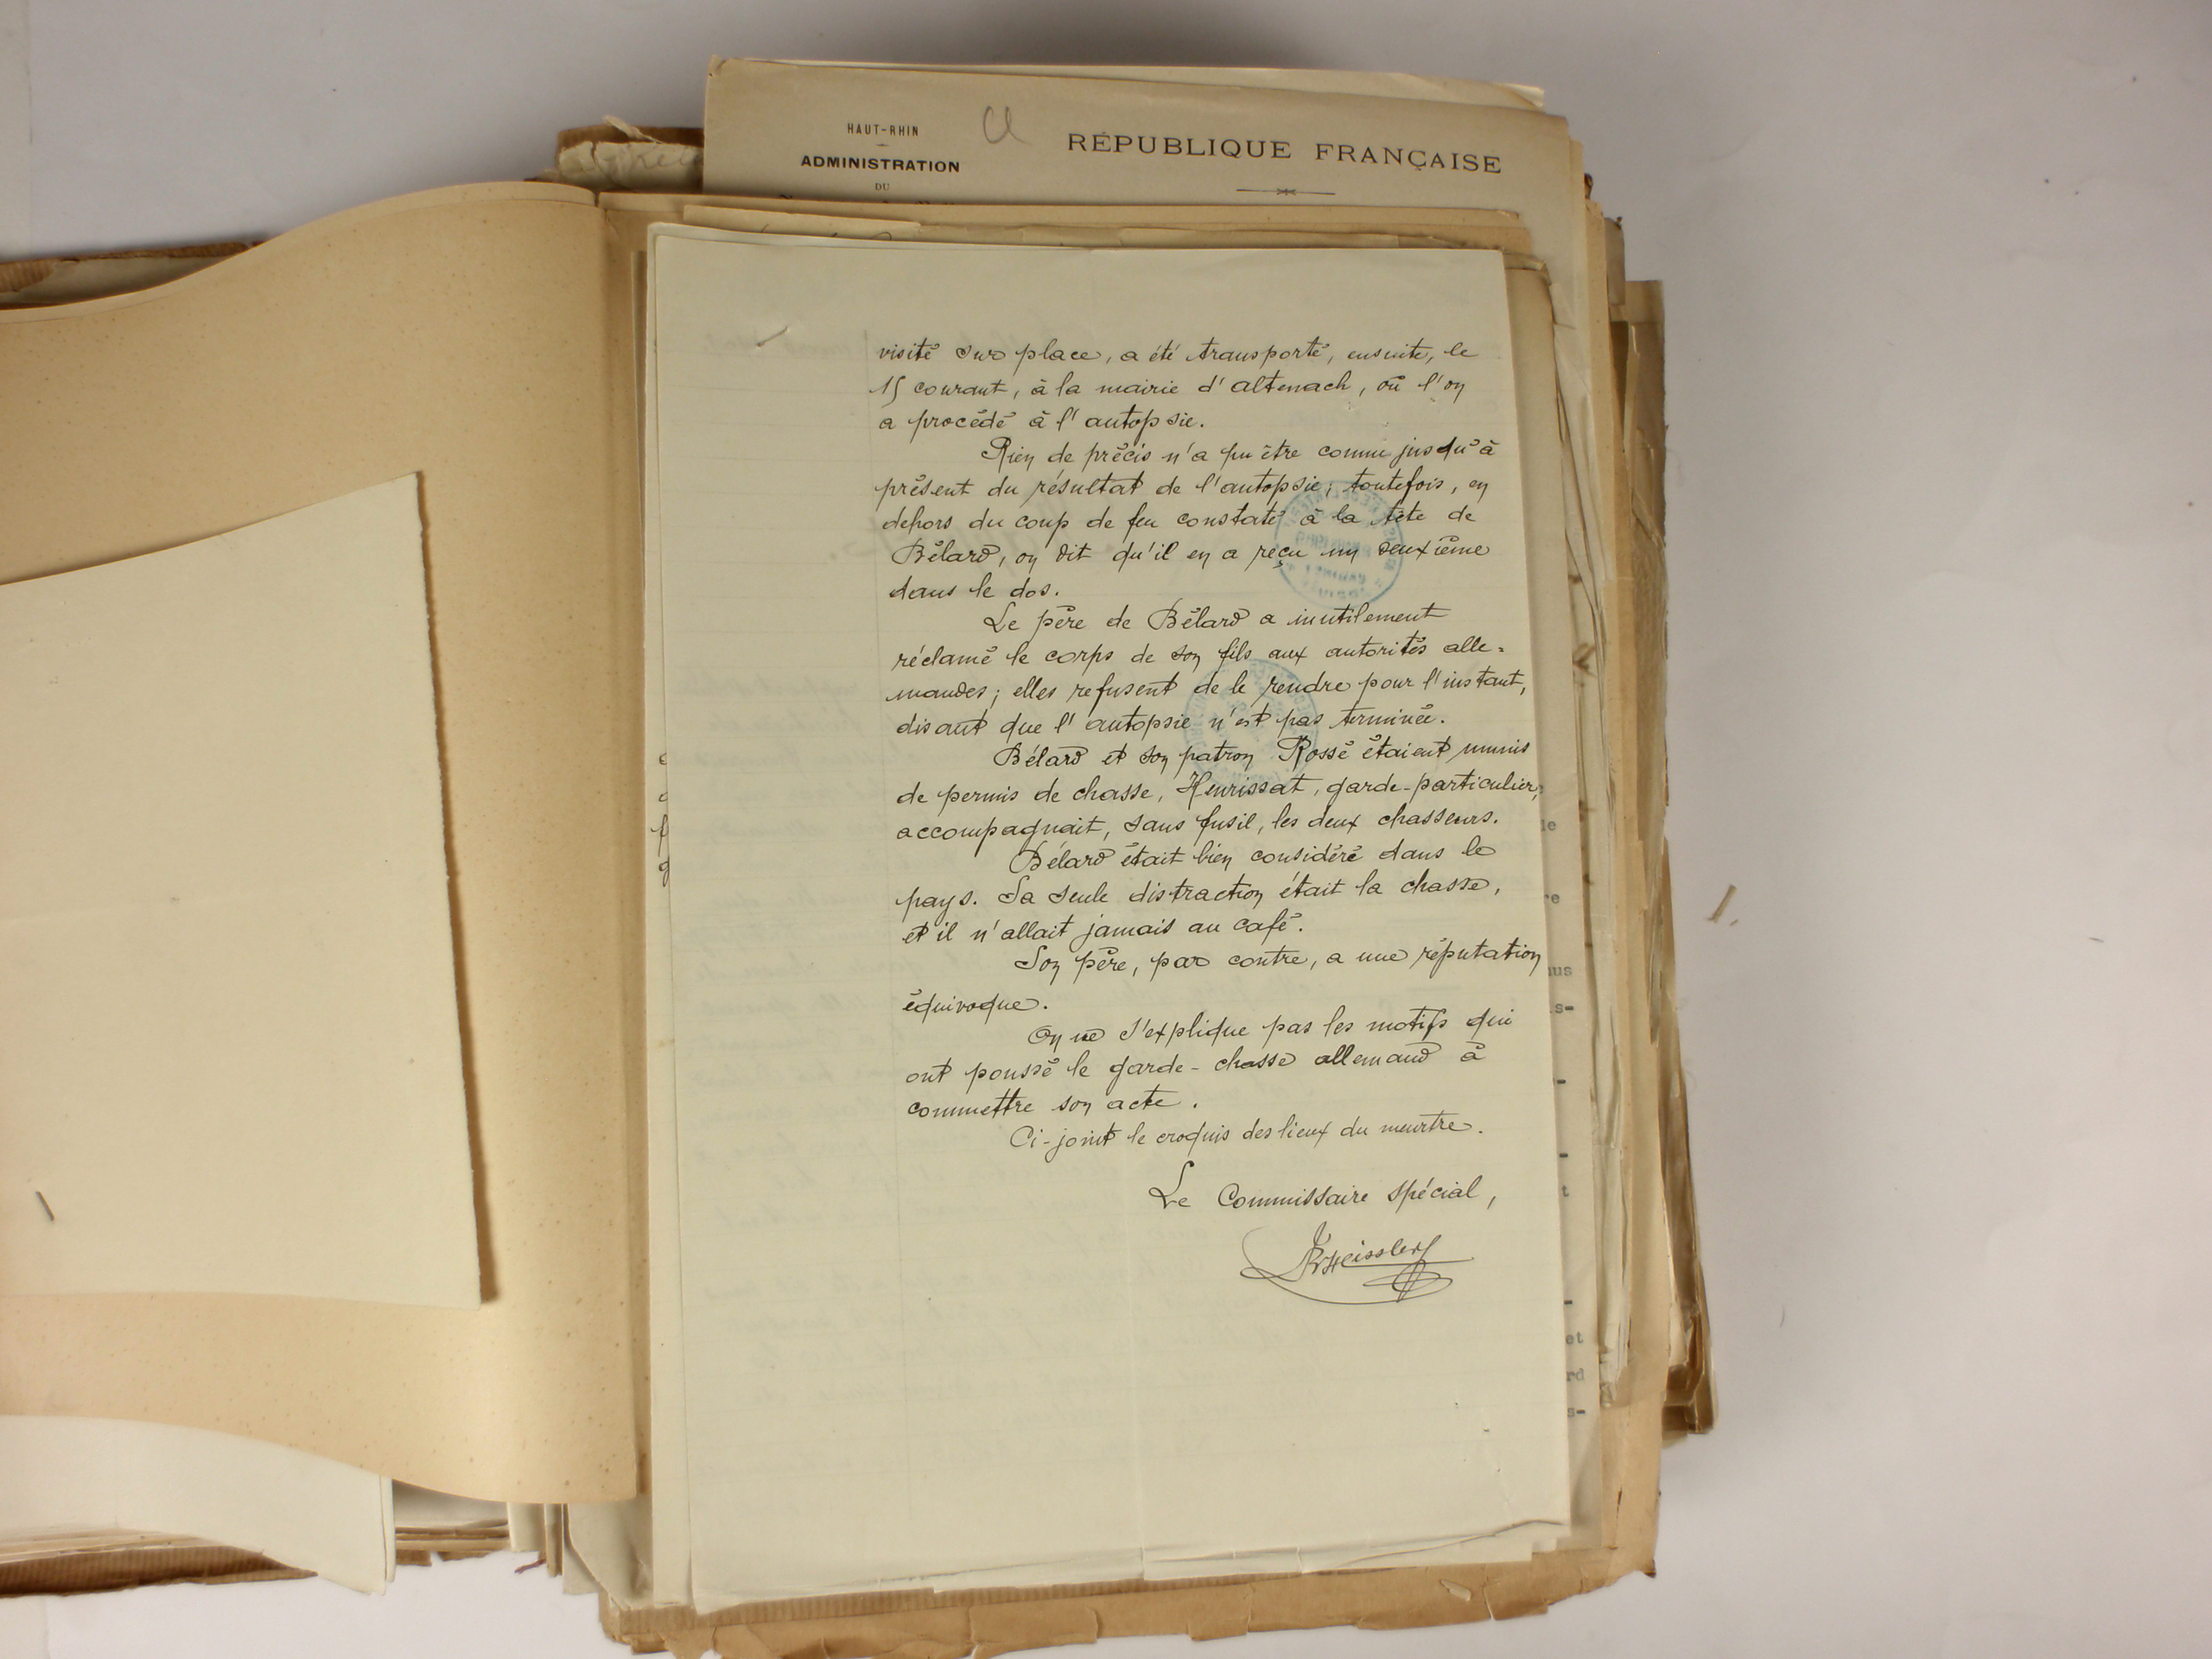 HAUT-RHIN
ADMINISTRATION
DU
RÉPUBLIQUE FRANÇAISE
visité sur place, a été transporté, ensuite, le
15 courant, à la mairie d'Altenach, où l'on
a procédé à l'autopsie.
Rien de précis n'a pu être connu jusqu'à
présent du résultat de l'autopsie; toutefois, en
dehors du coup de feu constaté à la tête de
Bélard, on dit qu'il en a reçu un deuxième
dans le dos.
Le père de Bélard a inutilement
réclamé le corps de son fils aux autorités alle-
mandes; elles refusent de le rendre pour l'instant,
disant que l'autopsie n'est pas terminée.
Bélard et son patron Rossé étaient munis
de permis de chasse, Henrissat, garde-particulier,
accompagnait, sans fusil, les deux chasseurs.
Bélard était bien considéré dans le
pays. Sa seule distraction était la chasse,
et il n'allait jamais au café.
Son père, par contre, a une réputation
équivoque.
On ne s'explique pas les motifs qui
ont poussé le garde-chasse allemand à
commettre son acte.
Ci-joint le croquis des lieux du meurtre.
Le Commissaire spécial,